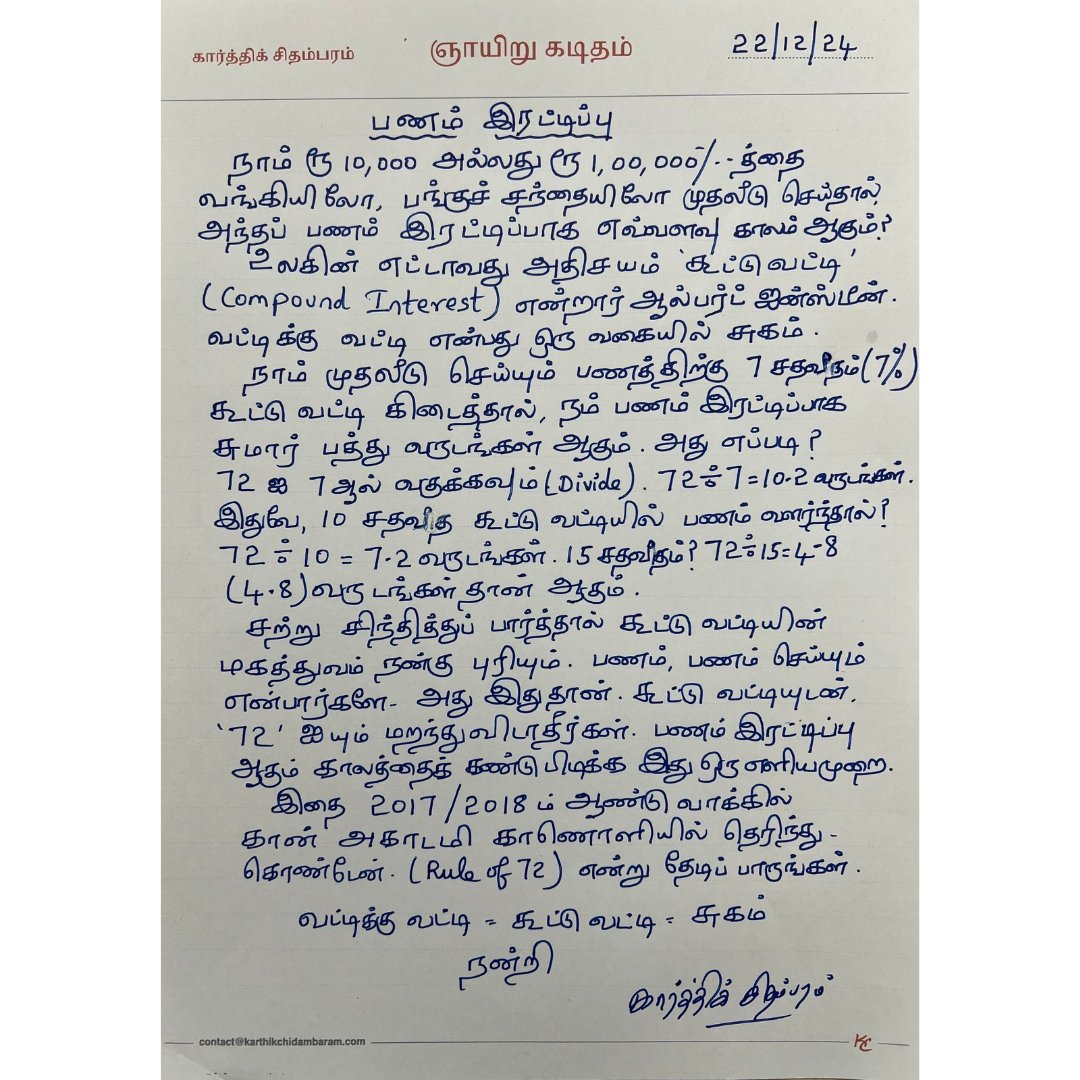 கார்த்திக் சிதம்பரம்
ஞாயிறு கடிதம்
22/12/24
பணம் இரட்டிப்பு
நாம் ரூ 10,000 அல்லது ரூ 1,00,000/-- த்தை
வங்கியிலோ, பங்குச் சந்தையிலோ முதலீடு செய்தால்
அந்தப் பணம் இரட்டிப்பாக எவ்வளவு காலம் ஆகும்?
உலகின் எட்டாவது அதிசயம் 'கூட்டு வட்டி'
(Compound Interest) என்றார் ஆல்பர்ட் ஐன்ஸ்டீன்.
வட்டிக்கு வட்டி என்பது ஒரு வகையில் சுகம்.
நாம் முதலீடு செய்யும் பணத்திற்கு 7 சதவீதம் (7%)
கூட்டு வட்டி கிடைத்தால், நம் பணம் இரட்டிப்பாக
சுமார் பத்து வருடங்கள் ஆகும். அது எப்படி?
72 ஐ 7 ஆல் வகுக்கவும் (Divide). 72÷7=10.2 வருடங்கள்.
இதுவே, 10 சதவீத கூட்டு வட்டியில் பணம் வளர்ந்தால்?
72 ÷ 10 = 7.2 வருடங்கள். 15 சதவீதம்? 72÷15=4-8
(4.8) வருடங்கள் தான் ஆகும்.
சற்று சிந்தித்துப் பார்த்தால் கூட்டு வட்டியின்
மகத்துவம் நன்கு புரியும். பணம், பணம் செய்யும்
என்பார்களே- அது இது தான். கூட்டு வட்டியுடன்,
'72' ஐயும் மறந்துவிடாதீர்கள். பணம் இரட்டிப்பு
ஆகும் காலத்தைக் கண்டுபிடிக்க இது ஒரு எளிய முறை.
இதை 2017/2018 ம் ஆண்டு வாக்கில்
கான் அகாடமி காணொளியில் தெரிந்து-
கொண்டேன். (Rule of 72) என்று தேடிப் பாருங்கள்.
வட்டிக்கு வட்டி = கூட்டு வட்டி = சுகம்
நன்றி
கார்த்திக் சிதம்பரம்
contact@karthikchidambaram.com
KC